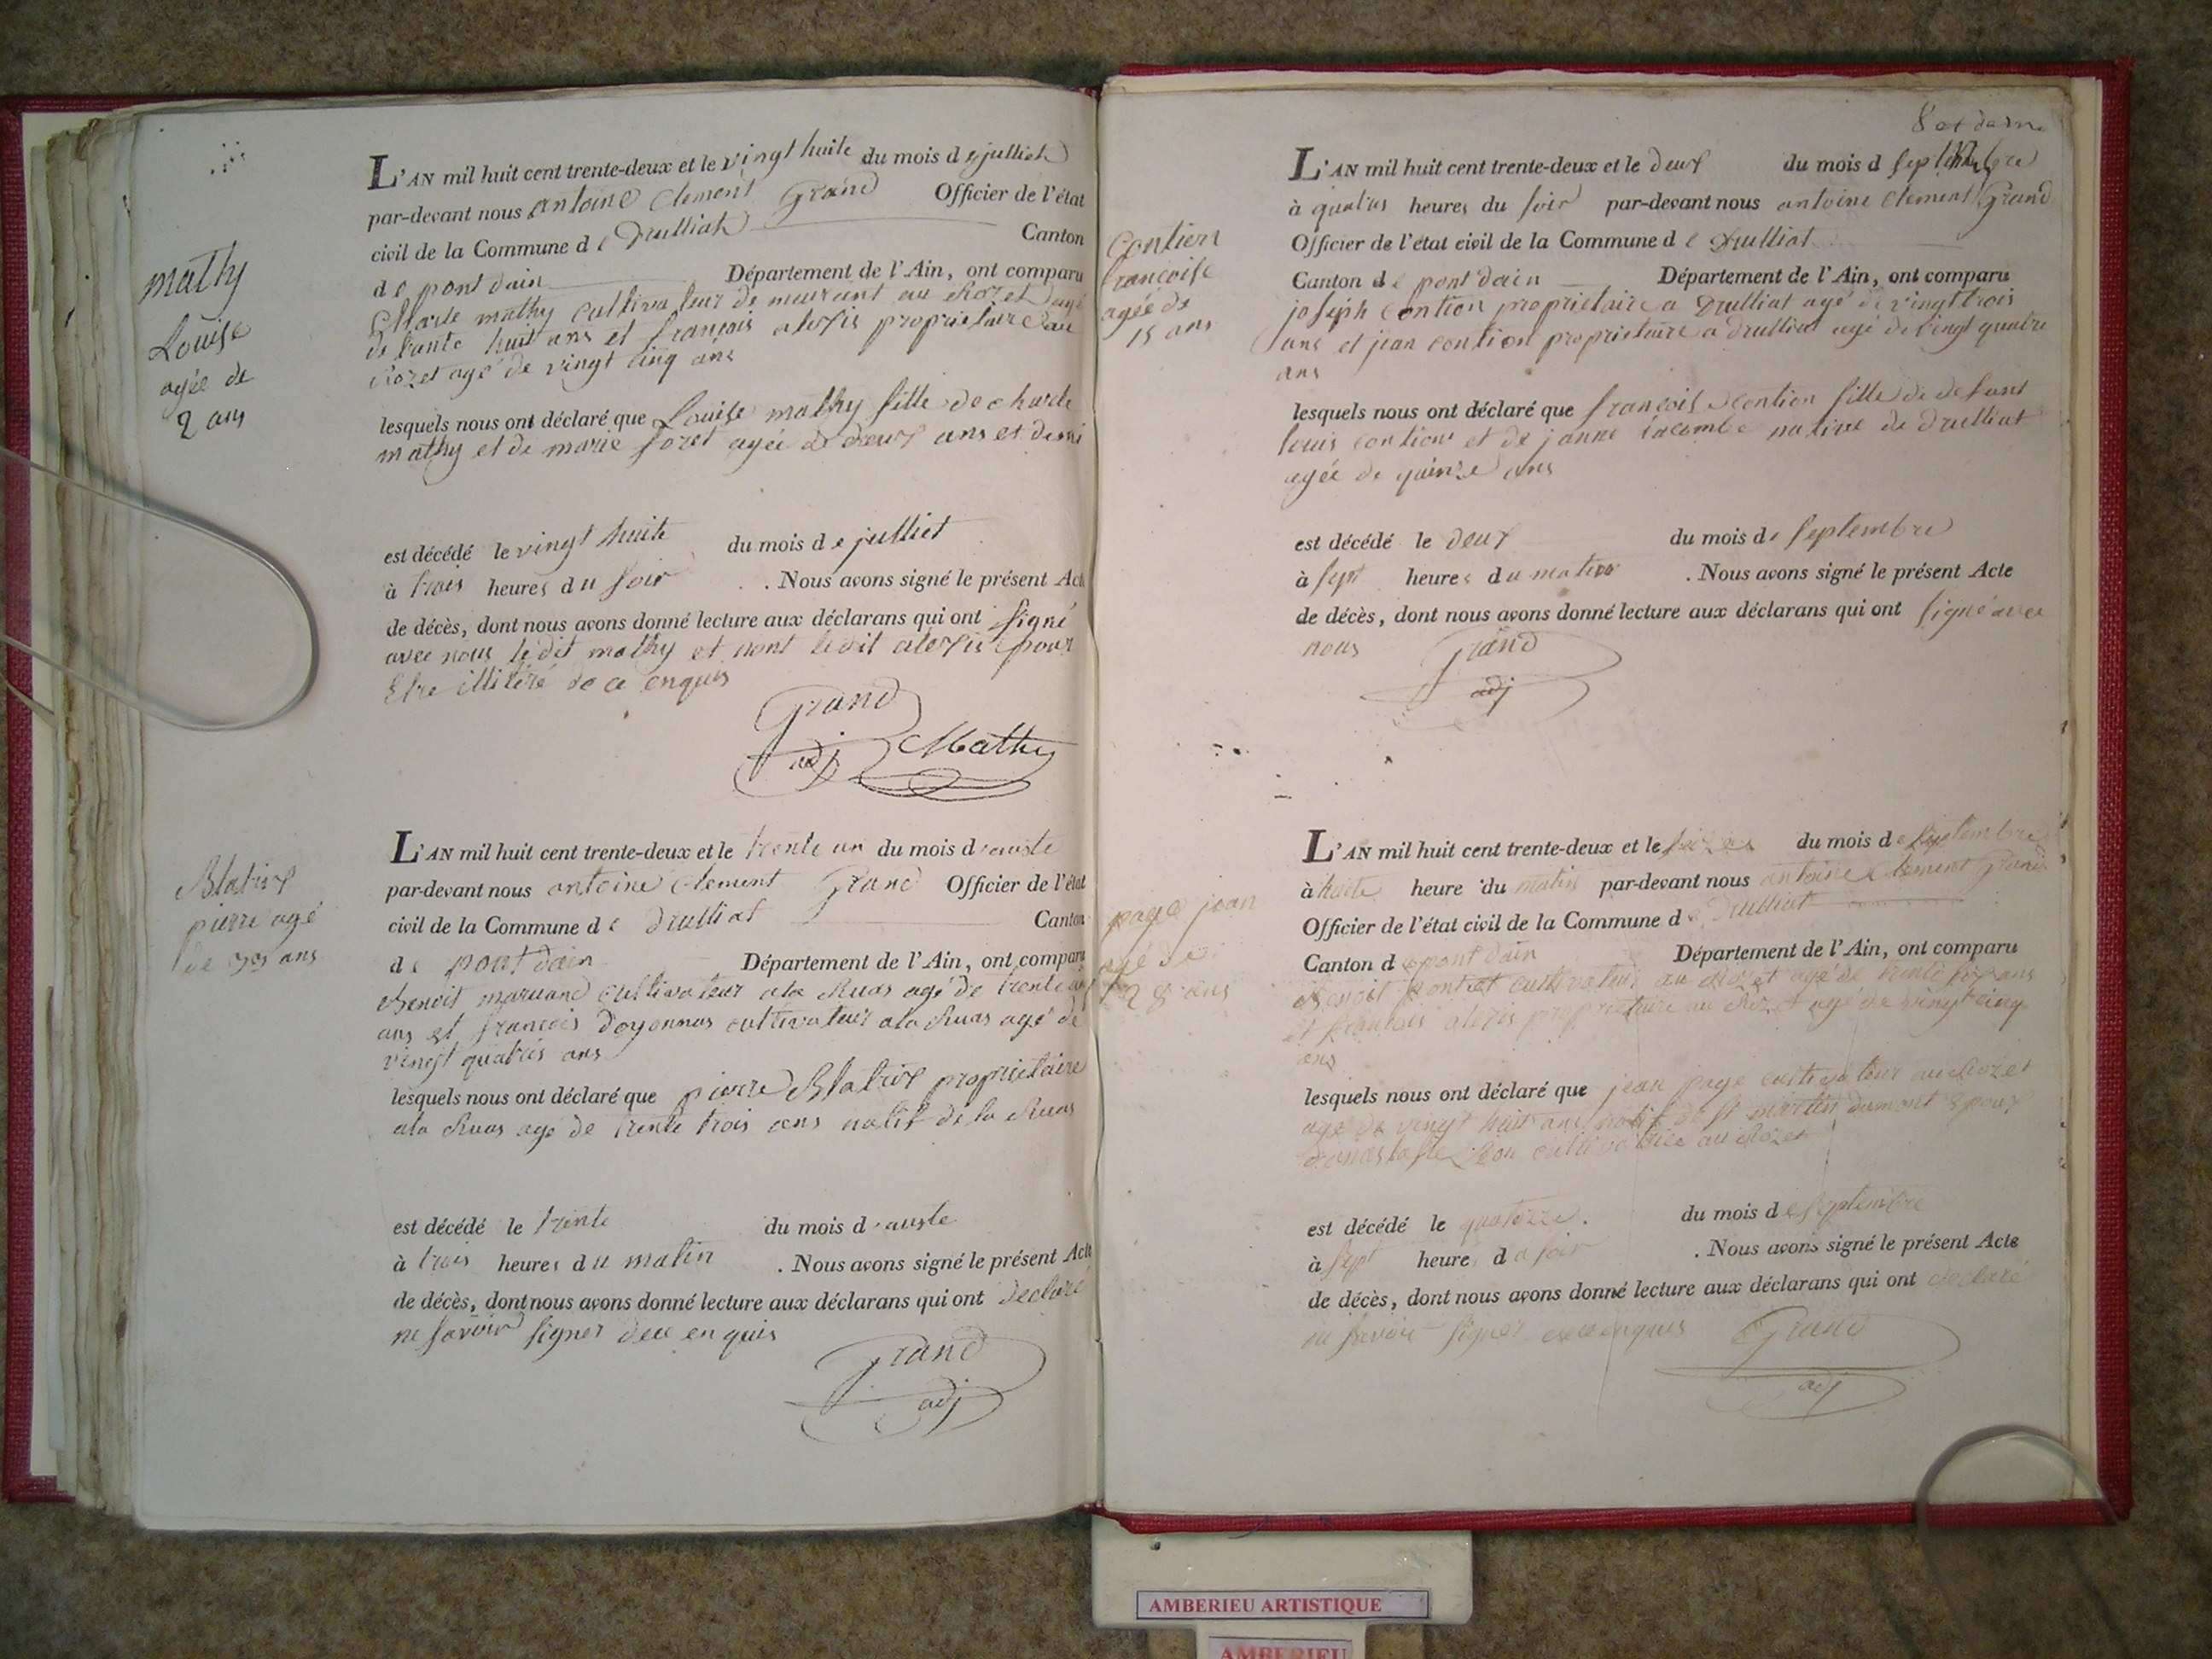 mathy
Louise
agée de
2 ans
L'AN mil huit cent trente-deux et le vingt huite du mois de julliet
par-devant nous antoine Clement Grand Officier de l'état
civil de la Commune de Drulliat Canton
de pont dain Département de l'Ain, ont comparu
Charle mathy cultivateur demeurant au Rozet agé
de trante huit ans et françois alexis proprietaire au
Rozet agé de vingt cinq ans
lesquels nous ont déclaré que Louise mathy fille de charle
mathy et de marie agée de deux ans et demi
est décédé le vingt huite du mois de julliet
à trois heures du soir . Nous avons signé le présent Acte
de décès, dont nous avons donné lecture aux déclarans qui ont signé
avec nous ledit mathy et nont ledit alexis pour
Etre illitéré de ce enquis
Grand
adj Mathy
Blatrix
pierre agé
de 33 ans
L'AN mil huit cent trente-deux et le trente un du mois d'auste
par-devant nous antoine Clement Grand Officier de l'état
civil de la Commune de Drulliat Canton
de pont dain Département de l'Ain, ont comparu
Benoit cultivateur ala Ruas agé de trente
ans et françois Doyonnas cultivateur ala Ruas agé de
vingt quatres ans
lesquels nous ont déclaré que pierre Blatrix proprietaire
ala Ruas agé de trente trois ans natif de la Ruas
est décédé le trente du mois d'auste
à trois heures du matin . Nous avons signé le présent Acte
de décès, dont nous avons donné lecture aux déclarans qui ont declaré
ne savoir signer dece enquis
Grand
adj
8 et
Contion
francoise
agée de
15 ans
L'AN mil huit cent trente-deux et le deux du mois d septembre
à quatres heures du soir par-devant nous antoine Clement Grand
Officier de l'état civil de la Commune de Drulliat
Canton de pont dain Département de l'Ain, ont comparu
joseph Contion proprietaire a Drulliat agé de vingt trois
ans et jean contion proprietaire a drulliat agé de vingt quatre
ans
lesquels nous ont déclaré que françoise contion fille de defunt
louis contion et de janne lacombe native de drulliat
agée de quinze ans
est décédé le deux du mois de septembre
à sept heures du matin . Nous avons signé le présent Acte
de décès, dont nous avons donné lecture aux déclarans qui ont signé avec
nous Grand
adj
page jean
agé de
28 ans
L'AN mil huit cent trente-deux et le du mois de septembre
à huite heure du matin par-devant nous antoine clement Grand
Officier de l'état civil de la Commune de Drulliat
Canton de pont dain Département de l'Ain, ont comparu
Benoit cultivateur au Rozet agé de trente six ans
et françois alexis proprietaire au Rozet agé de vingt cinq
ans
lesquels nous ont déclaré que jean page cultivateur au Rozet
agé de vingt huit ans natif de st martin dumont Epoux
cultivatrice au Rozet
est décédé le quatorze . du mois de septembre
à sept heure du soir . Nous avons signé le présent Acte
de décès, dont nous avons donné lecture aux déclarans qui ont declaré
ne savoir signer dece enquis Grand
adj
AMBERIEU ARTISTIQUE
AMBERIEU